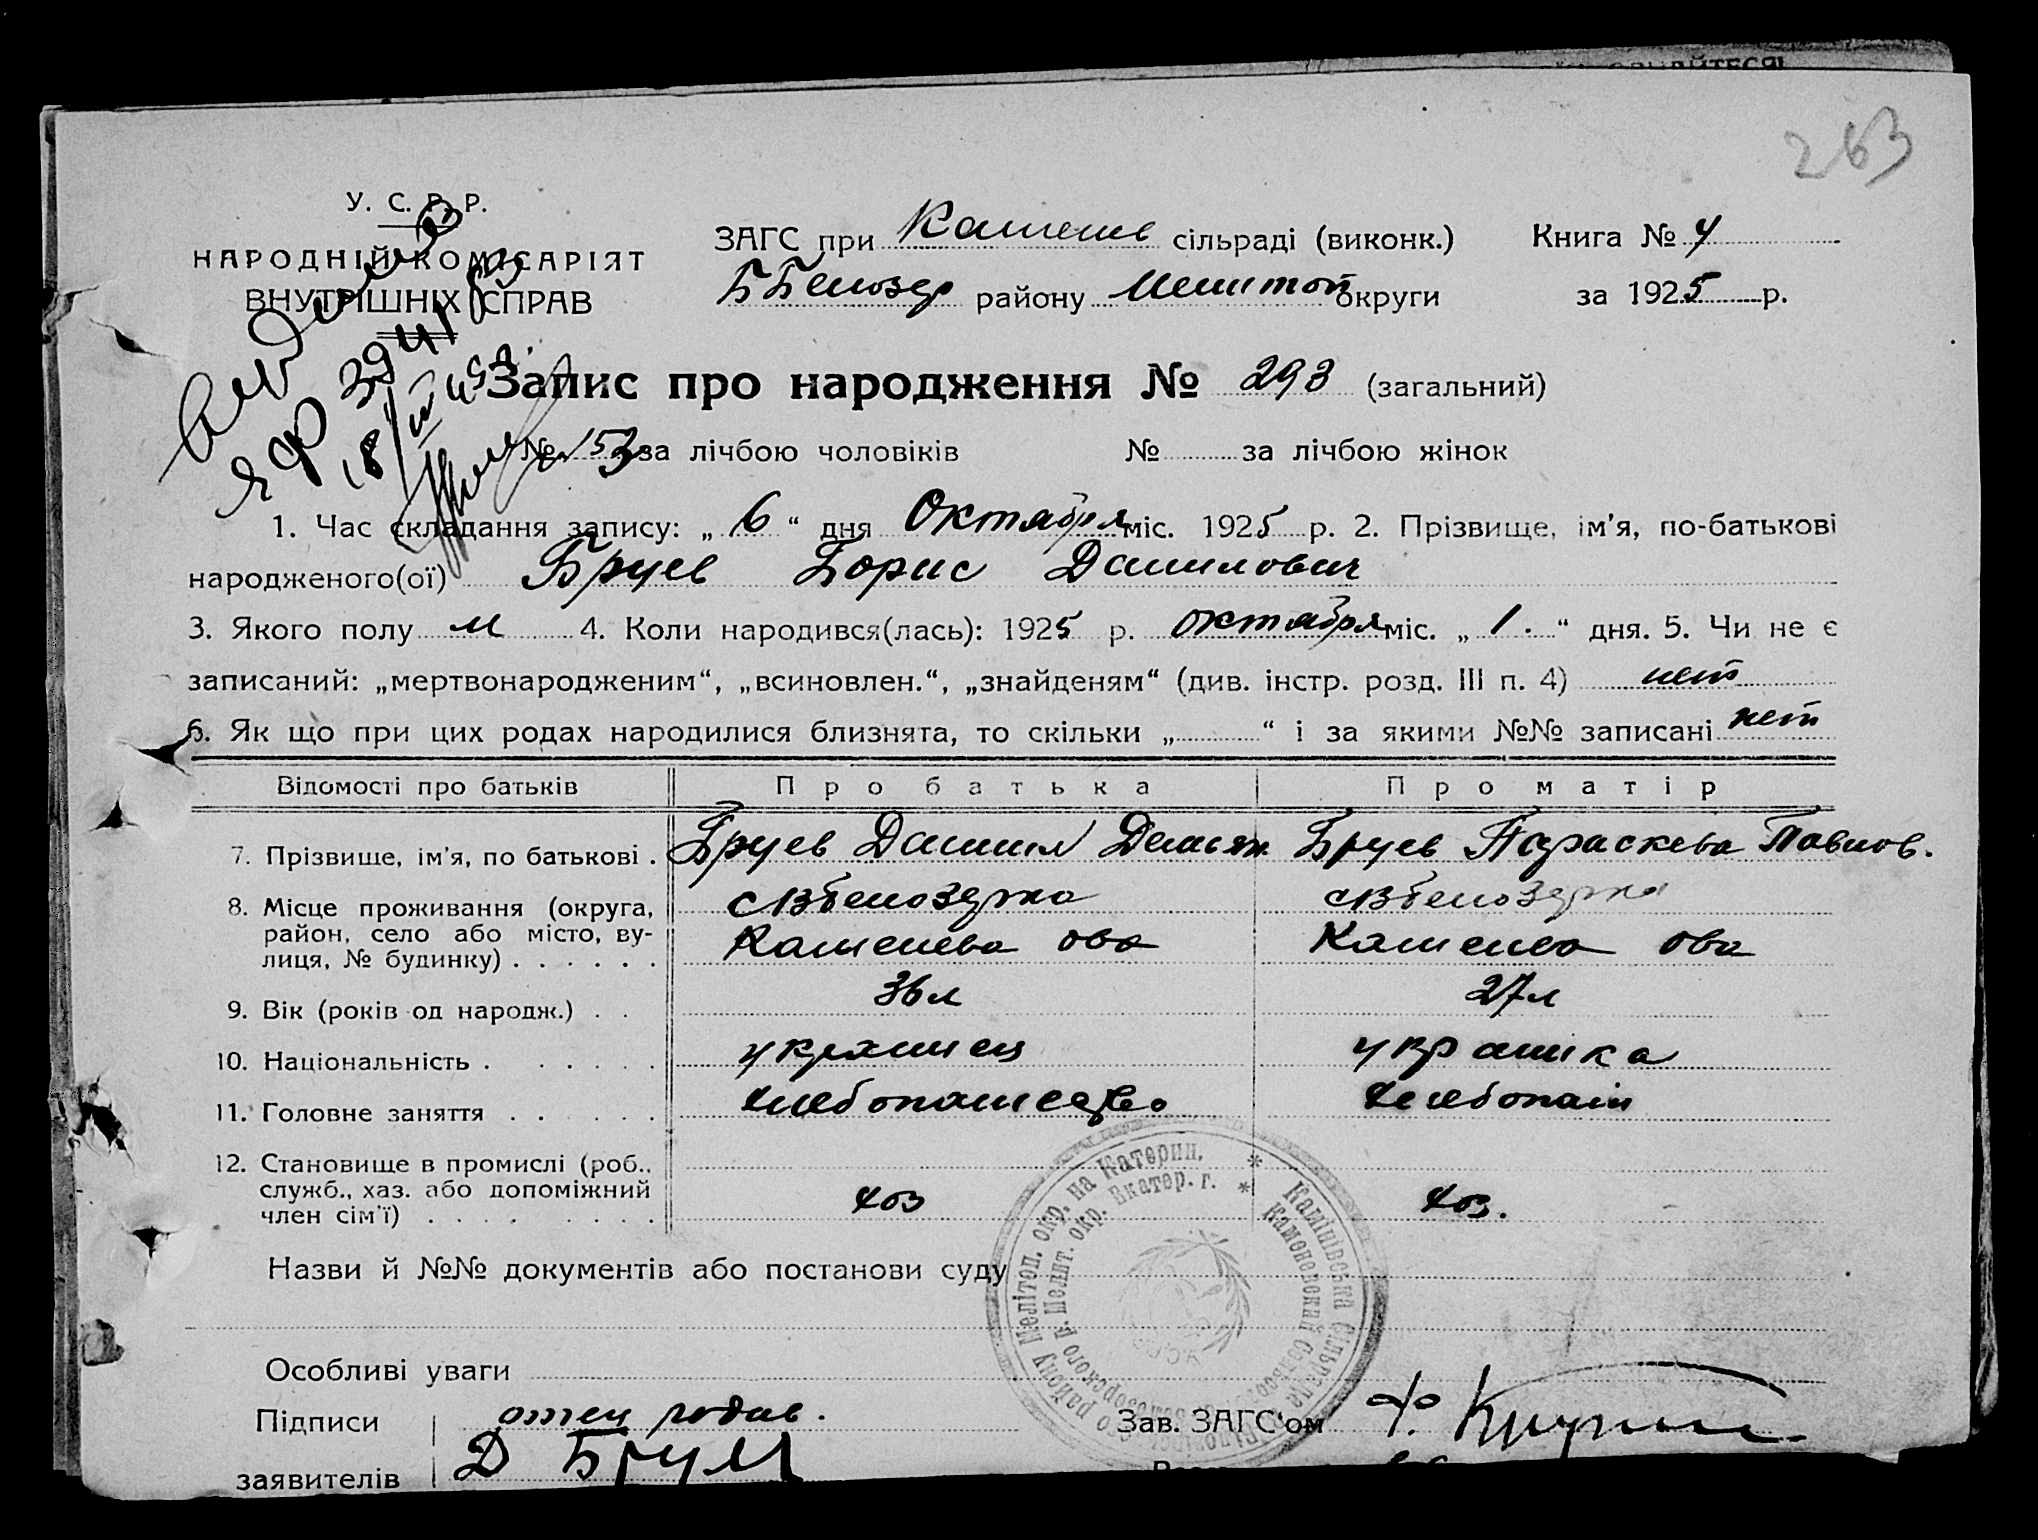 263
У. С. Р. Р.
НАРОДНІЙ КОМІСАРІЯТ
ВНУТРІШНІХ СПРАВ
ЗАГС при Каменев сільраді (виконк.) Книга № 4
ББелозер району Мелитоп округи за 1925 р.
Запис про народження № 293 (загальний)
№ 153 за лічбою чоловіків № за лічбою жінок
1. Час складання запису: „ 6 “ дня Октября міс. 1925 р. 2. Прізвище, ім'я, по-батькові
народженого(ої) Бруев Борис Данилович
3. Якого полу м 4. Коли народився(лась): 1925 р. октября міс. „ 1. “ дня. 5. Чи не є
записаний: „мертвонародженим“, „всиновлен.“, „знайденям“ (див. інстр. розд. III п. 4) нет
6. Як що при цих родах народилися близнята, то скільки „ “ і за якими №№ записані нет
Відомості про батьків Про батька Про матір
7. Прізвище, ім'я, по батькові . Бруев Даниил Демьян. Бруев Параскева Павлов.
8. Місце проживання (округа, район, село або місто, вулиця, № будинку)
Каменева Каменева
9. Вік (років од народж.) . . 36 л 27 л
10. Національність . украинец украінка
11. Головне заняття . хлебопашество хлебопаш
12. Становище в промислі (роб., служб., хаз. або допоміжний член сім'ї) хоз хоз.
Назви й №№ документів або постанови суду
Особливі уваги
Підписи отец родив.
заявителів Д Бруй
Зав. ЗАГС'ом
Камінівська Сільрада
Каменевский
району Мелітоп. окр. на Катерин.
р. Мелит. окр. Екатер. г.